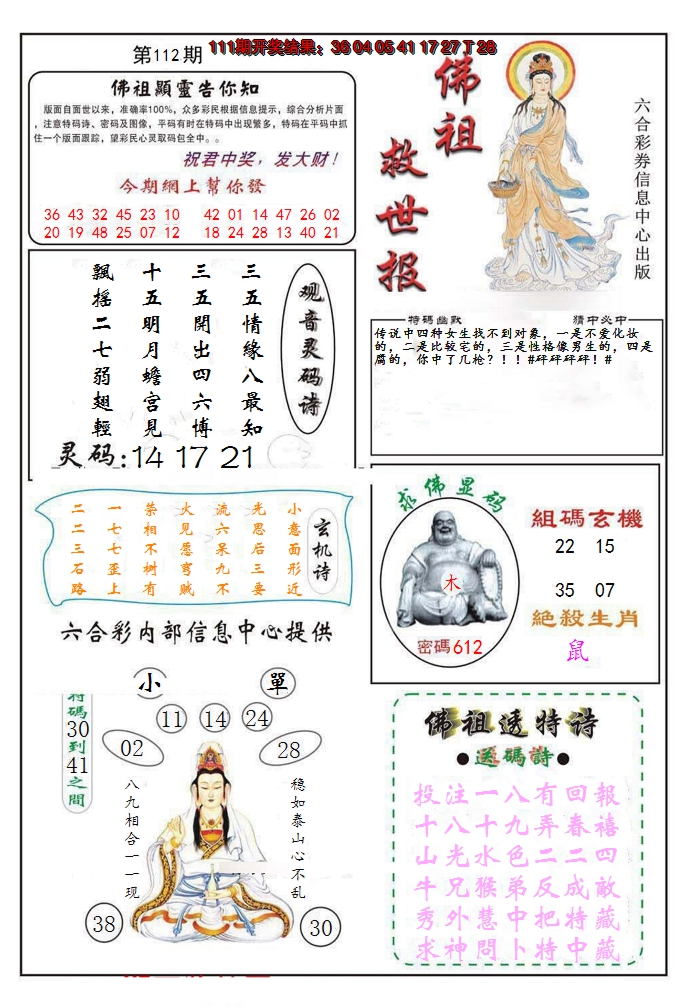 第112期
111期开奖结果：36 04 05 41 17 27丁28
佛祖顯靈告你知
版面自面世以来，准确率100%，众多彩民根据信息提示，综合分析片面
，注意特码诗、密码及图像，平码有时在特码中出现繁多，特码在平码中抓
住一个版面跟踪，望彩民心灵取码包全中。。
祝君中奖，发大财！
今期網上幫你發
36 43 32 45 23 10 42 01 14 47 26 02
20 19 48 25 07 12 18 24 28 13 40 21
佛祖救世报
六合彩券信息中心出版
观音灵码诗
三五情緣八最知
三五開出四六博
十五明月蟾宫見
飄摇二七弱翅輕
灵码:14 17 21
特碼幽默
猜中必中
传说中四种女生找不到对象，一是不爱化妆
的，二是比较宅的，三是性格像男生的，四是
腐的，你中了几枪？！！#砰砰砰砰！#
玄机诗
小意面形近
光思后三要
流六呆九不
火见愿穷贼
柴相不树有
一七七歪上
二二三石路
六合彩内部信息中心提供
求佛显码
木
密碼612
組碼玄機
22 15
35 07
絶殺生肖
鼠
小
單
特碼30到41之間
11
14
24
02
28
八九相合一一现
稳如泰山心不乱
38
30
佛祖透特诗
●送碼詩●
投注一八有回報
十八十九弄春禧
山光水色二二四
牛兄猴弟反成敢
秀外慧中把特藏
求神問卜特中藏